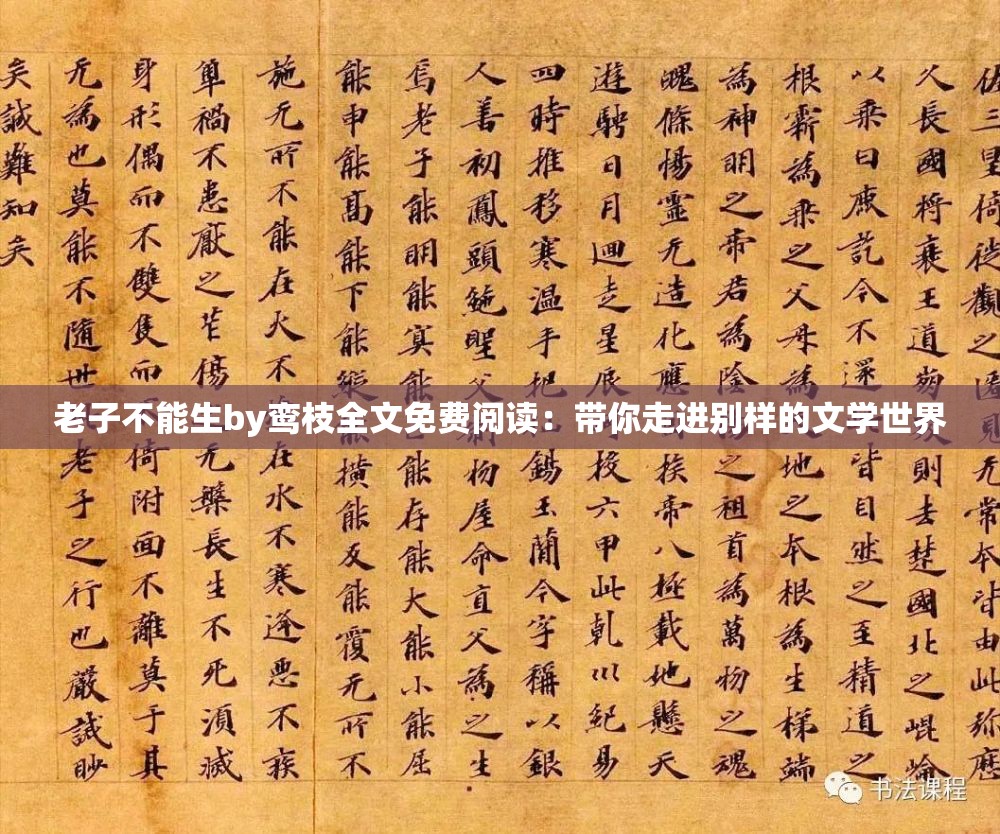 久長國將衰王道 則去楚國北之崐崘
以乘 訖今不還 皆自然之至精道之
根霸為乘之父母為 地之本根為生梯端
為神明之帝君為陰 之祖首為萬物之魂
魄條暢靈无造化應 挨帝八極載地懸天
遊騁日月迴走星辰 投六甲此乹 紀易
四時推移寒温手把 錫玉蘭今字稱以銀
人善初鳳頭絁聖父 物屋命直父為之生
焉老子能明能冥能 能存能大能小能屈
能申能高能下能縱 橫能反能覆无所不
施无所不能在火不 在水不寒逢惡不疾
單禍不患厭之芒傷 无槩長生不死湏滅
身形偶而不雙隻而 倚附面不離莫于其
无為也莫能不隨世 老子之行也嚴誡眇
矣誠難知矣
老子不能生by鸾枝全文免费阅读：带你走进别样的文学世界
书法课程